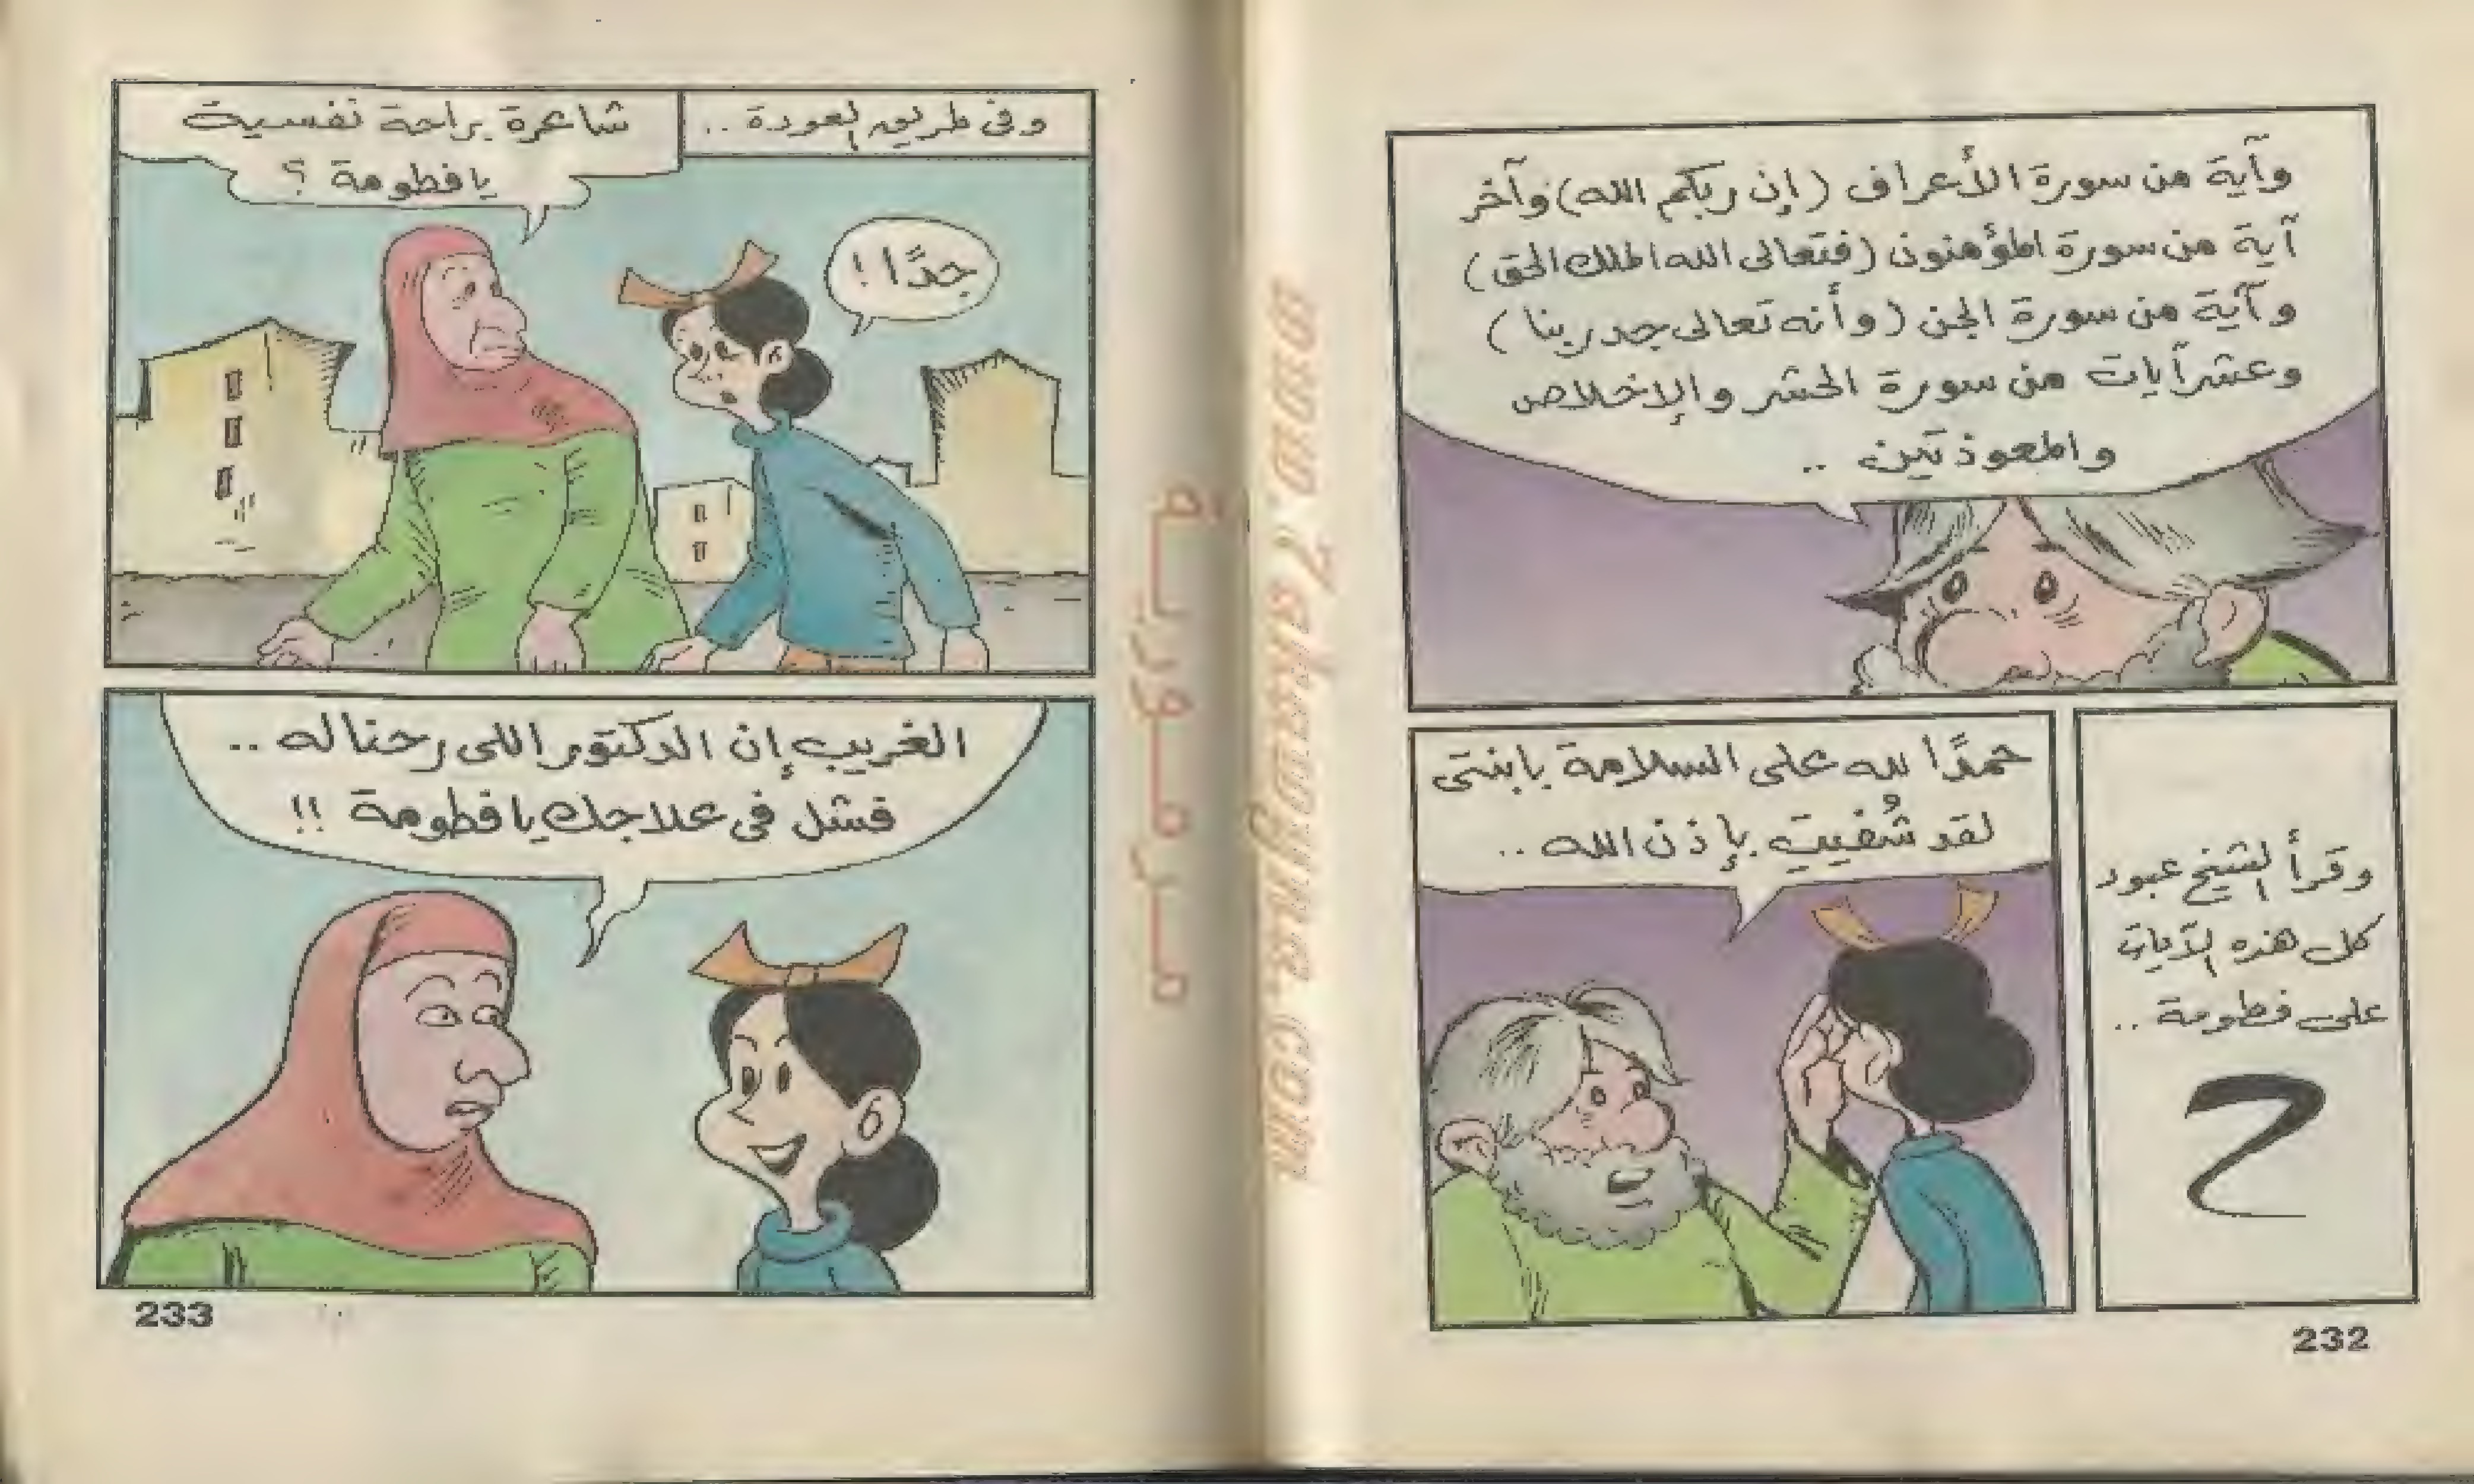 وآية من سورة الأعراف (إن ربكم الله) وآخر
آية من سورة المؤمنون (فتعالى الله الملك الحق)
وآية من سورة الجن (وأنه تعالى جد ربنا)
وعشر آيات من سورة الحشر والإخلاص
والمعوذتين ..
وقرأ الشيخ عبود
كل هذه الآيات
على فطومة ..
حمدًا لله على السلامة يابنتى
لقد شُفيتِ بإذن الله ..
232
وفى طريق العودة ..
شاعرة براحة نفسية
يا فطومة ؟
جدًا !
الغريب إن الدكتور اللى رحنا له ..
فشل فى علاجك يا فطومة !!
233
مرمورية